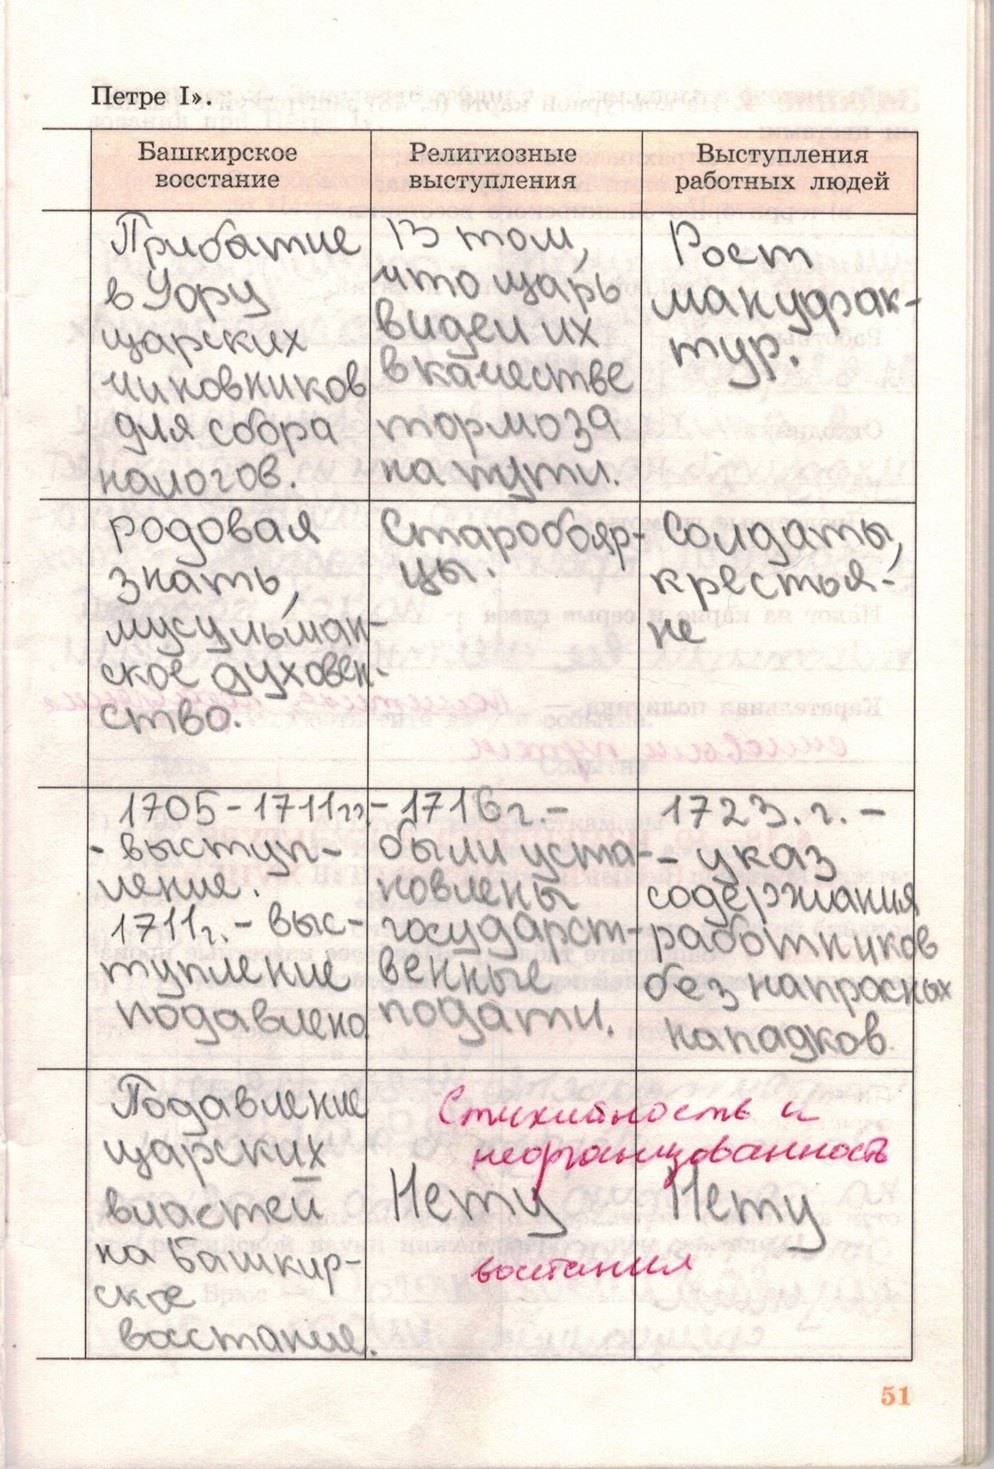 Петре I».
Башкирское
восстание
Религиозные
выступления
Выступления
работных людей
Прибытие
в Уфу
царских
чиновников
для сбора
налогов.
В том,
что царь
видел их
в качестве
тормоза
на пути.
Рост
мануфак-
тур.
родовая
знать,
мусульман-
ское духовен-
ство.
Старобояр-
цы.
Солдаты,
крестья-
не
1705-1711гг-
- выступ-
ление.
1711г. - выс-
тупление
подавлено
1716г. -
были уста-
новлены
государст-
венные
подати.
1723.г. -
- указ
содержания
работников
без напрасных
нападков.
Подавление
царских
властей
на Башкир-
ское
восстание.
Стихийность и
неорганизованность
Нету
Нету
востания
51